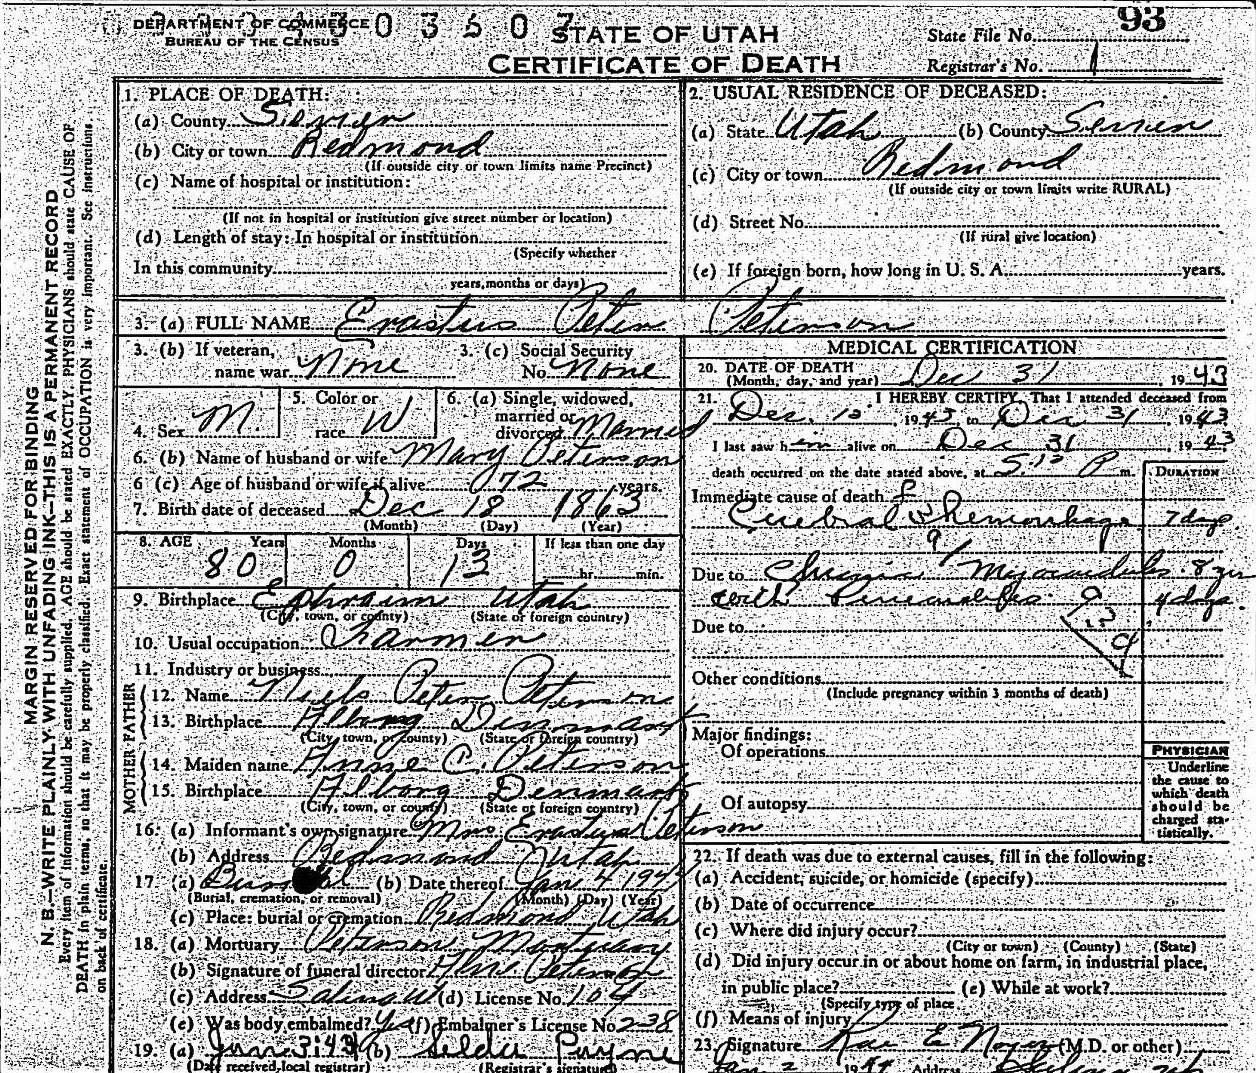 DEPARTMENT OF COMMERCE
BUREAU OF THE CENSUS
STATE OF UTAH
CERTIFICATE OF DEATH
State File No. 93
Registrar's No. 1
MARGIN RESERVED FOR BINDING
N. B.—WRITE PLAINLY WITH UNFADING INK—THIS IS A PERMANENT RECORD
Every item of information should be carefully supplied. AGE should be stated EXACTLY. PHYSICIANS should state CAUSE OF
DEATH in plain terms, so that it may be properly classified. Exact statement of OCCUPATION is very important. See instructions
on back of certificate.
1. PLACE OF DEATH:
(a) County Sevier
(b) City or town Redmond
(If outside city or town limits name Precinct)
(c) Name of hospital or institution:
(If not in hospital or institution give street number or location)
(d) Length of stay: In hospital or institution
(Specify whether
In this community
years, months or days)
2. USUAL RESIDENCE OF DECEASED:
(a) State Utah (b) County Sevier
(c) City or town Redmond
(If outside city or town limits write RURAL)
(d) Street No.
(If rural give location)
(e) If foreign born, how long in U. S. A. years.
3. (a) FULL NAME Erastus Peter Peterson
3. (b) If veteran,
name war None
3. (c) Social Security
No. None
4. Sex M.
5. Color or
race W
6. (a) Single, widowed,
married or
divorced Married
6. (b) Name of husband or wife Mary Peterson
6 (c) Age of husband or wife if alive 72 years.
7. Birth date of deceased Dec 18 1863
(Month) (Day) (Year)
8. AGE Years Months Days If less than one day
80 0 13 hr. min.
9. Birthplace Ephraim Utah
(City, town, or county) (State or foreign country)
10. Usual occupation Farmer
11. Industry or business
FATHER
12. Name Niels Peter Peterson
13. Birthplace Alborg Denmark
(City, town, or county) (State or foreign country)
MOTHER
14. Maiden name Anne C. Peterson
15. Birthplace Alborg Denmark
(City, town, or county) (State or foreign country)
16. (a) Informant's own signature Mrs Erastus Peterson
(b) Address Redmond Utah
17. (a) Burial (b) Date thereof Jan 4 194
(Burial, cremation, or removal) (Month) (Day) (Year)
(c) Place: burial or cremation Redmond Utah
18. (a) Mortuary Peterson Mortuary
(b) Signature of funeral director Peterson
(c) Address Salina Ut (d) License No. 104
(e) Was body embalmed? Yes (f) Embalmer's License No 238
19. (a) Jan 3: 44 (b) Selda Payne
(Date received local registrar) (Registrar's signature)
MEDICAL CERTIFICATION
20. DATE OF DEATH
(Month, day, and year) Dec 31, 1943
21. I HEREBY CERTIFY, That I attended deceased from
Dec. 1943 to Dec 31, 1943.
I last saw him alive on Dec 31, 1943
death occurred on the date stated above, at 5:15 P m.
DURATION
Immediate cause of death
Cerebral Hemorrhage 7 days
Due to Chronic Myocarditis 8 yrs
with 4 days
Due to
Other conditions
(Include pregnancy within 3 months of death)
Major findings:
Of operations
Of autopsy
PHYSICIAN
Underline
the cause to
which death
should be
charged sta-
tistically.
22. If death was due to external causes, fill in the following:
(a) Accident, suicide, or homicide (specify)
(b) Date of occurrence
(c) Where did injury occur?
(City or town) (County) (State)
(d) Did injury occur in or about home on farm, in industrial place,
in public place? (e) While at work?
(Specify type of place
(f) Means of injury
23. Signature Rae E Noyes (M.D. or other)
Jan 2 1944 Address